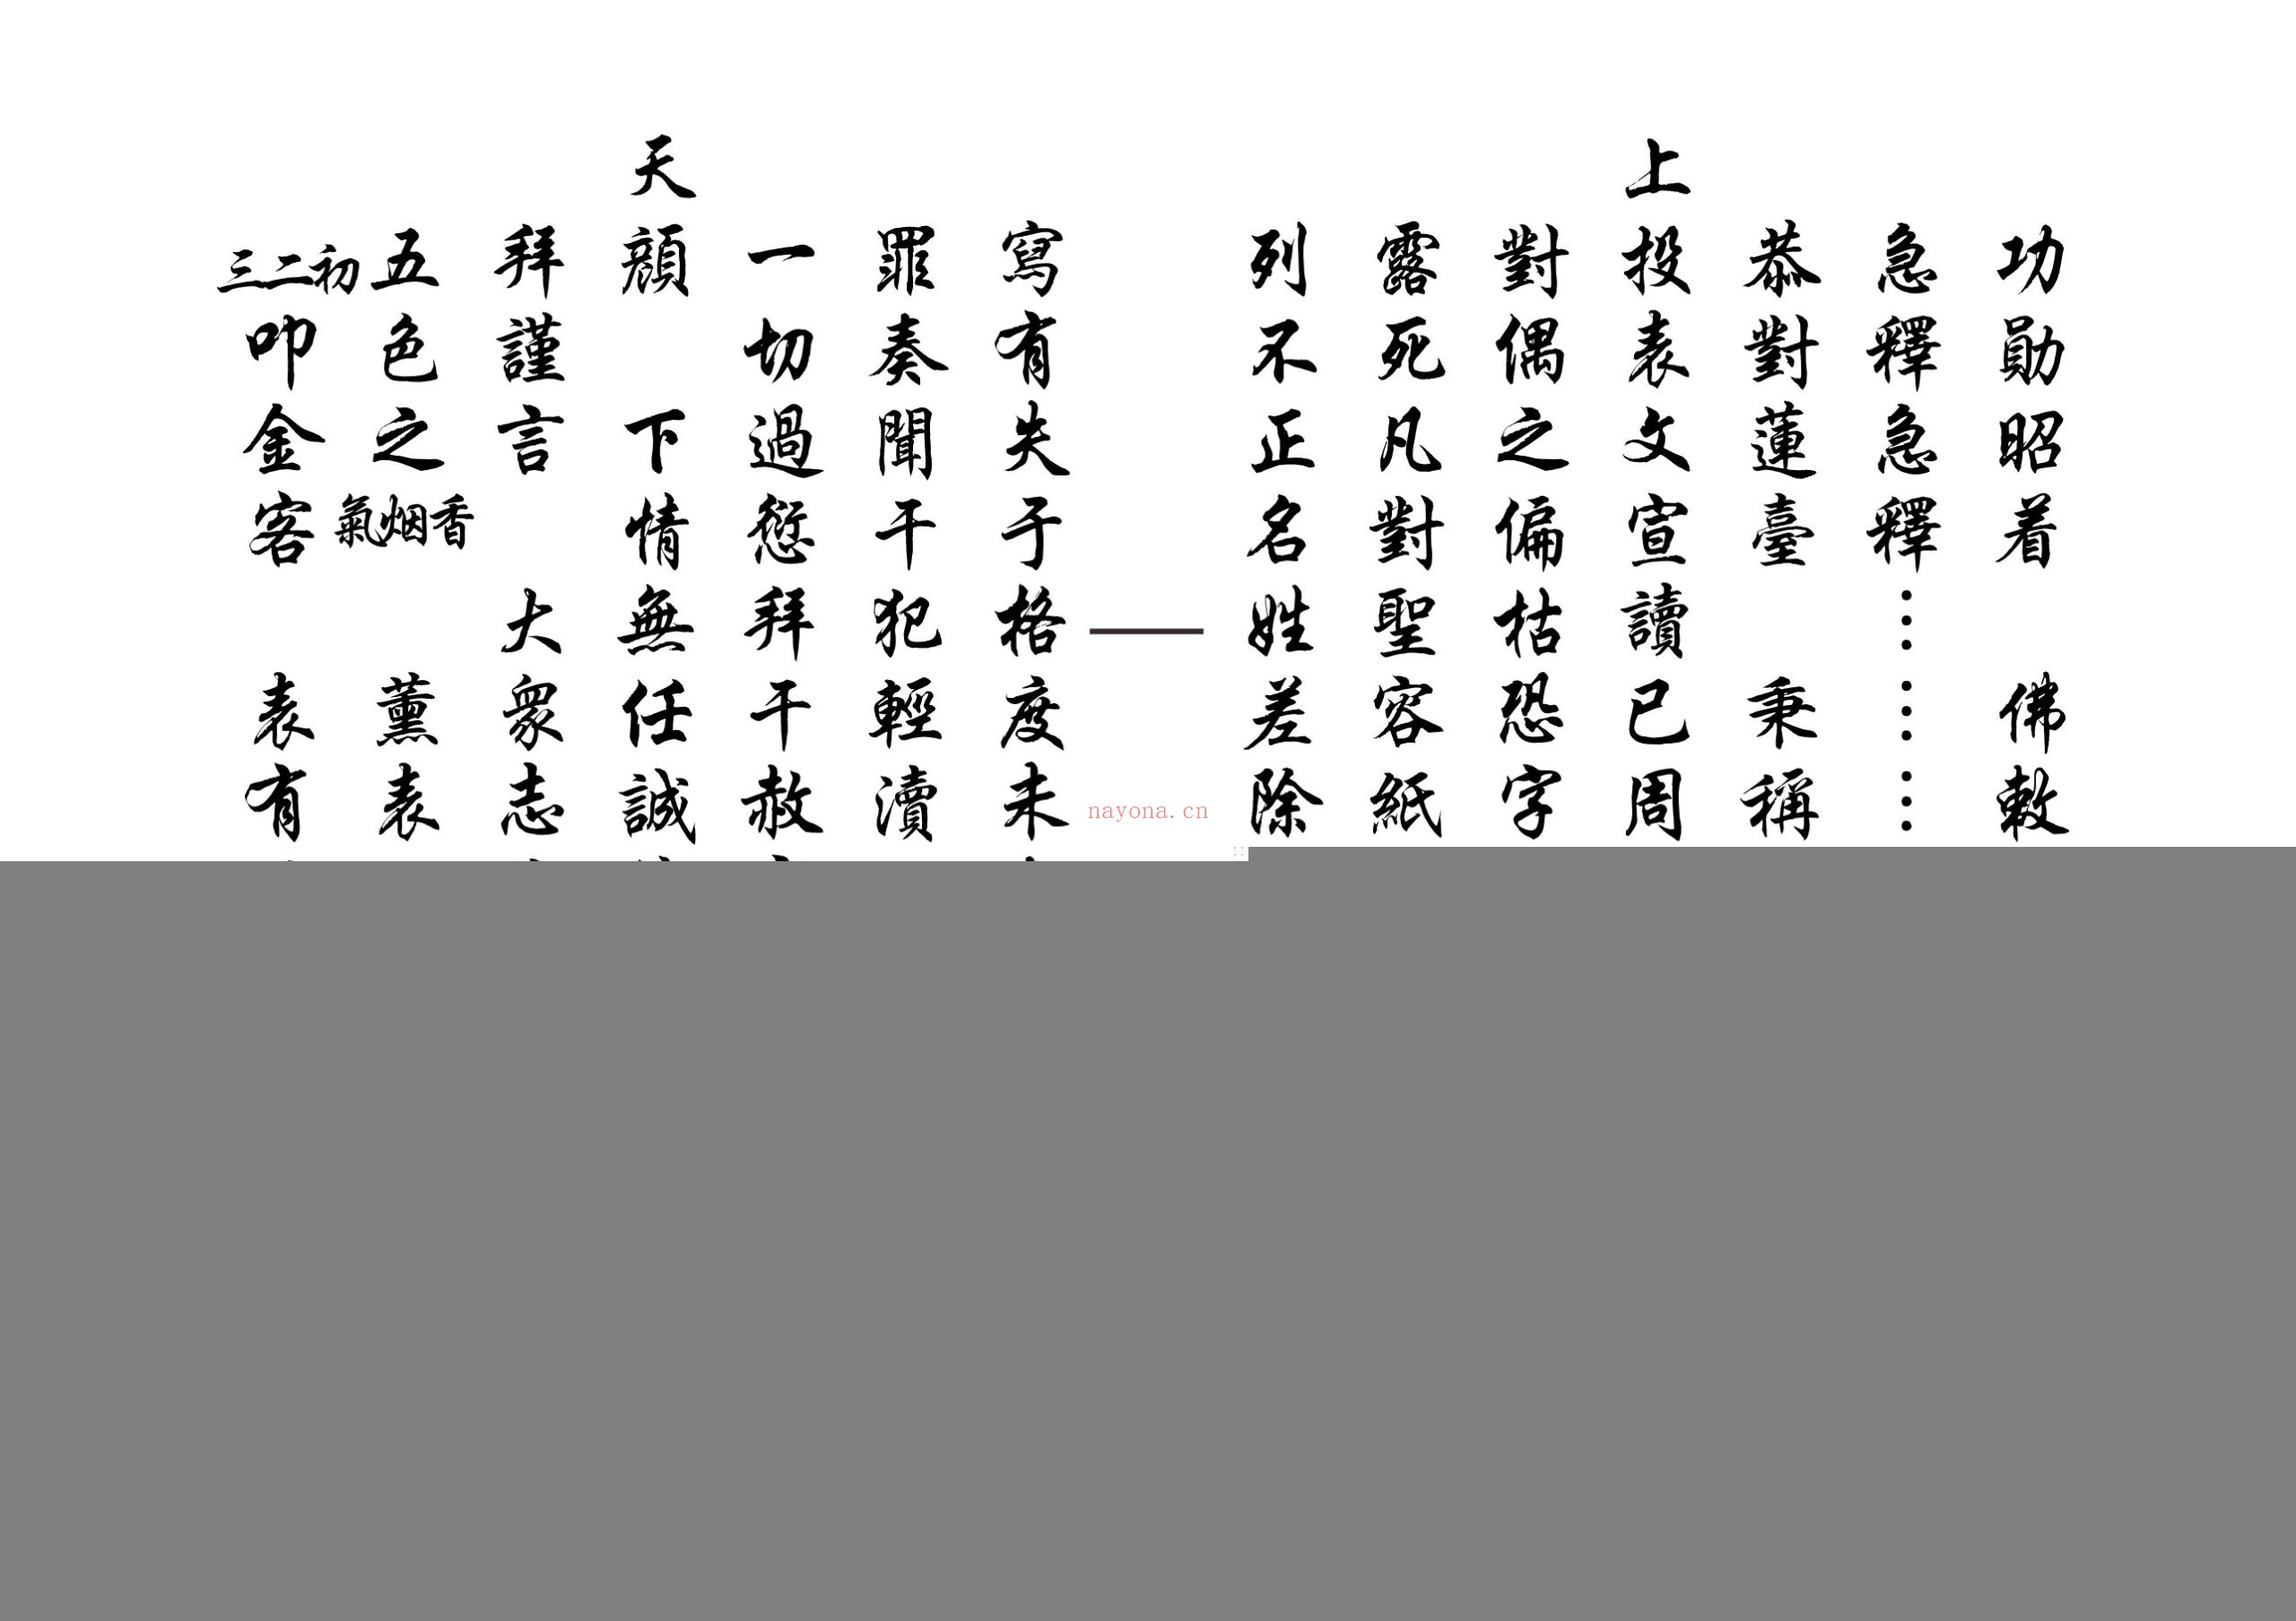 功勛昭着 佛敕
急釋急釋………
恭對蓮臺 秉稱
上投表文宣讀已周
對偶之偏枯恐字
露死凡對聖容紙
列不正名姓差除
寫有失于格度未
罪奏聞干犯輕瀆
一切過愆拜干赦
天顏 下情無任誠
拜謹言 大眾志
五色之香烟氣 薰表
初二三叩金容 表有
nayona.cn